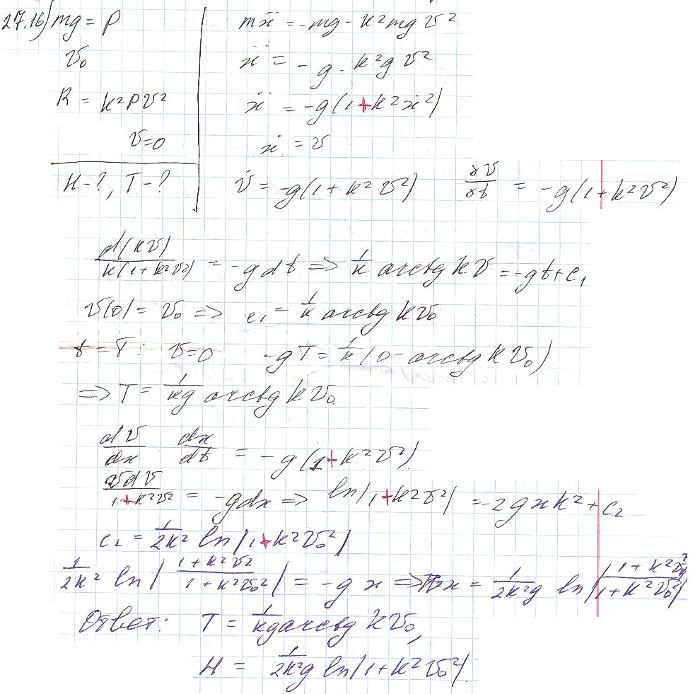 27.16) mg = P
v₀
R = k²Pv²
v=0
H-?, T-?
mẍ = -mg - k²mg v²
ẍ = -g - k²g v²
ẍ = -g(1+k²ẋ²)
ẋ = v
v̇ = -g(1+k²v²)   dv/dt = -g(1+k²v²)
d(kv)/k(1+k²v²) = -gdt => 1/k arctg kv = -gt+c₁
v(0) = v₀ => c₁ = 1/k arctg kv₀
t=T: v=0   -gT = 1/k (0 - arctg kv₀)
=> T = 1/kg arctg kv₀
dv/dx dx/dt = -g(1+k²v²)
vdv/1+k²v² = -gdx => ln|1+k²v²| = -2gxk²+c₂
c₂ = 1/2k² ln|1+k²v₀²|
1/2k² ln|1+k²v²/1+k²v₀²| = -gx => x = 1/2k²g ln|1+k²v₀²/1+k²v₀²|
Ответ: T = 1/kg arctg kv₀,
H = 1/2k²g ln|1+k²v₀²|